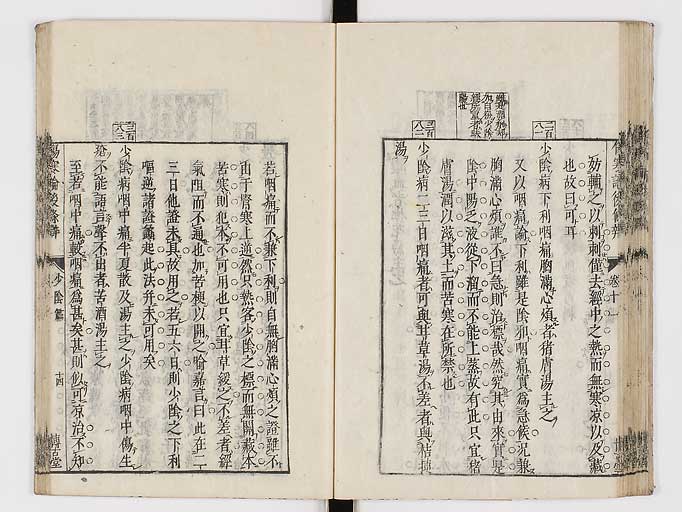 妨輒之以刺刺僅去經中之熱而無寒凉以及藏
也故曰可耳
三百八一
少陰病下利咽痛胸滿心煩者猪膚湯主之
又以咽痛論下利雖是陰邪咽痛實爲急候況兼
胸滿心煩誰不曰急則治標哉然究其由來實是
陰中陽之液從下溜而不能上蒸故有此只宜猪
膚湯潤以滋其上而苦寒在所禁也
三百八二
少陰病二三日咽痛者可與甘草湯不差者與桔梗
湯
若咽痛而不兼下利則自無胸滿心煩之證雖不
由于腎寒上逆然只熱客少陰之標而無關藏本
苦寒則犯本不可用也只宜甘草緩之不差者經
氣阻而不通也加苦梗以開之喻嘉言曰此在二
三日他證未具故用之若五六日則少陰之下利
嘔逆諸證蠭起此法并未可用矣
三百八三
少陰病咽中痛半夏散及湯主之少陰病咽中傷生
瘡不能語言聲不出者苦酒湯主之
至若咽中痛較咽痛爲甚矣甚則似可凉治不知
少陰篇
十四
卷十一